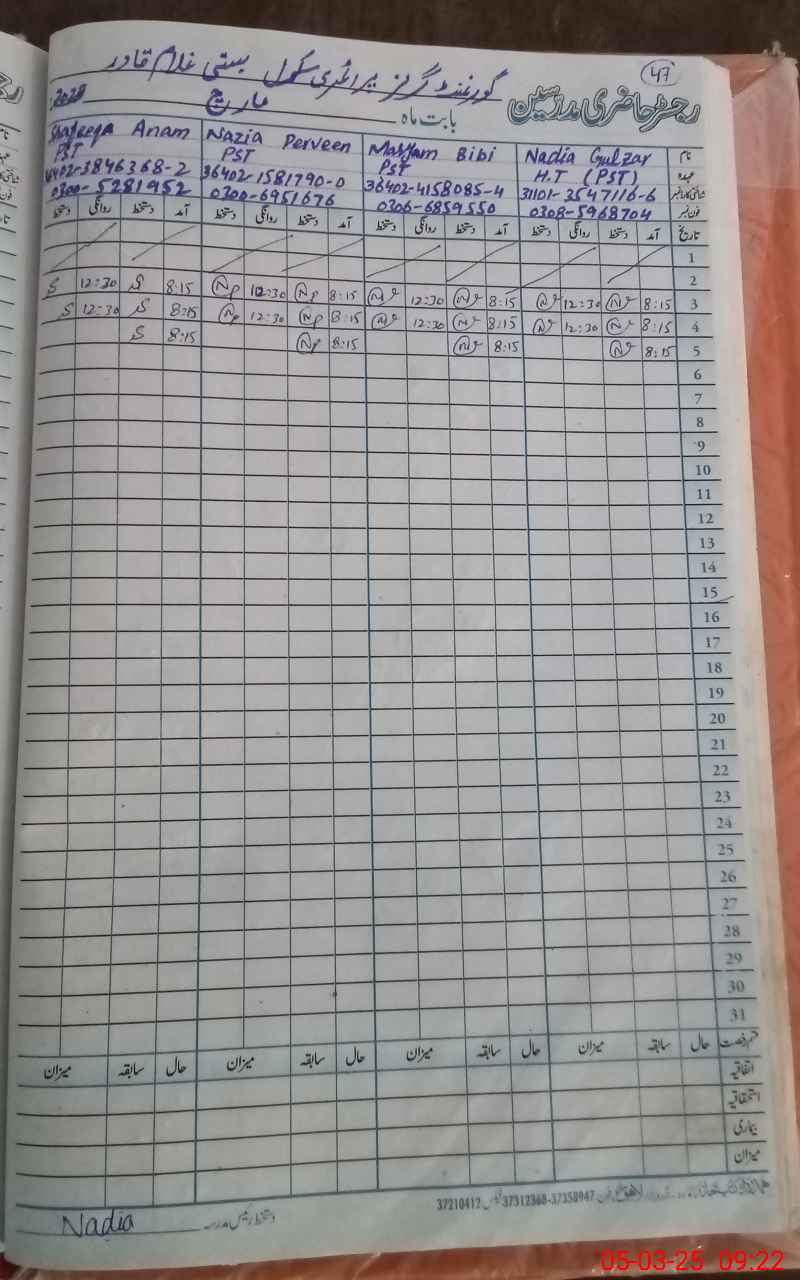 47
رجسٹر حاضری مدرسین
گورنمنٹ گرلز پرائمری سکول بستی غلام قادر
بابت ماہ مارچ
نام Nadia Gulzar Maryam Bibi Nazia Perveen Shafeeqa Anam
عہدہ H.T (PST) PST PST PST
شناختی کارڈ نمبر 31101-3547116-6 36402-4158085-4 36402-1581790-0 36402-3846368-2
فون نمبر 0308-5968704 0306-6859550 0300-6951676 0300-5281952
تاریخ آمد دستخط روانگی دستخط آمد دستخط روانگی دستخط آمد دستخط روانگی دستخط آمد دستخط روانگی دستخط
1
2
3 8:15 12:30 8:15 12:30 8:15 12:30 8:15 S 12:30 S
4 8:15 12:30 8:15 12:30 8:15 12:30 8:15 S 12:30 S
5 8:15 8:15 8:15 8:15 S
6
7
8
9
10
11
12
13
14
15
16
17
18
19
20
21
22
23
24
25
26
27
28
29
30
31
قسم رخصت حال سابقہ میزان حال سابقہ میزان حال سابقہ میزان حال سابقہ میزان
اتفاقیہ
استحقاقیہ
بیماری
میزان
37210412 فیکس 37312368-37358947
دستخط رئیس مدرسہ Nadia
05-03-25 09:22